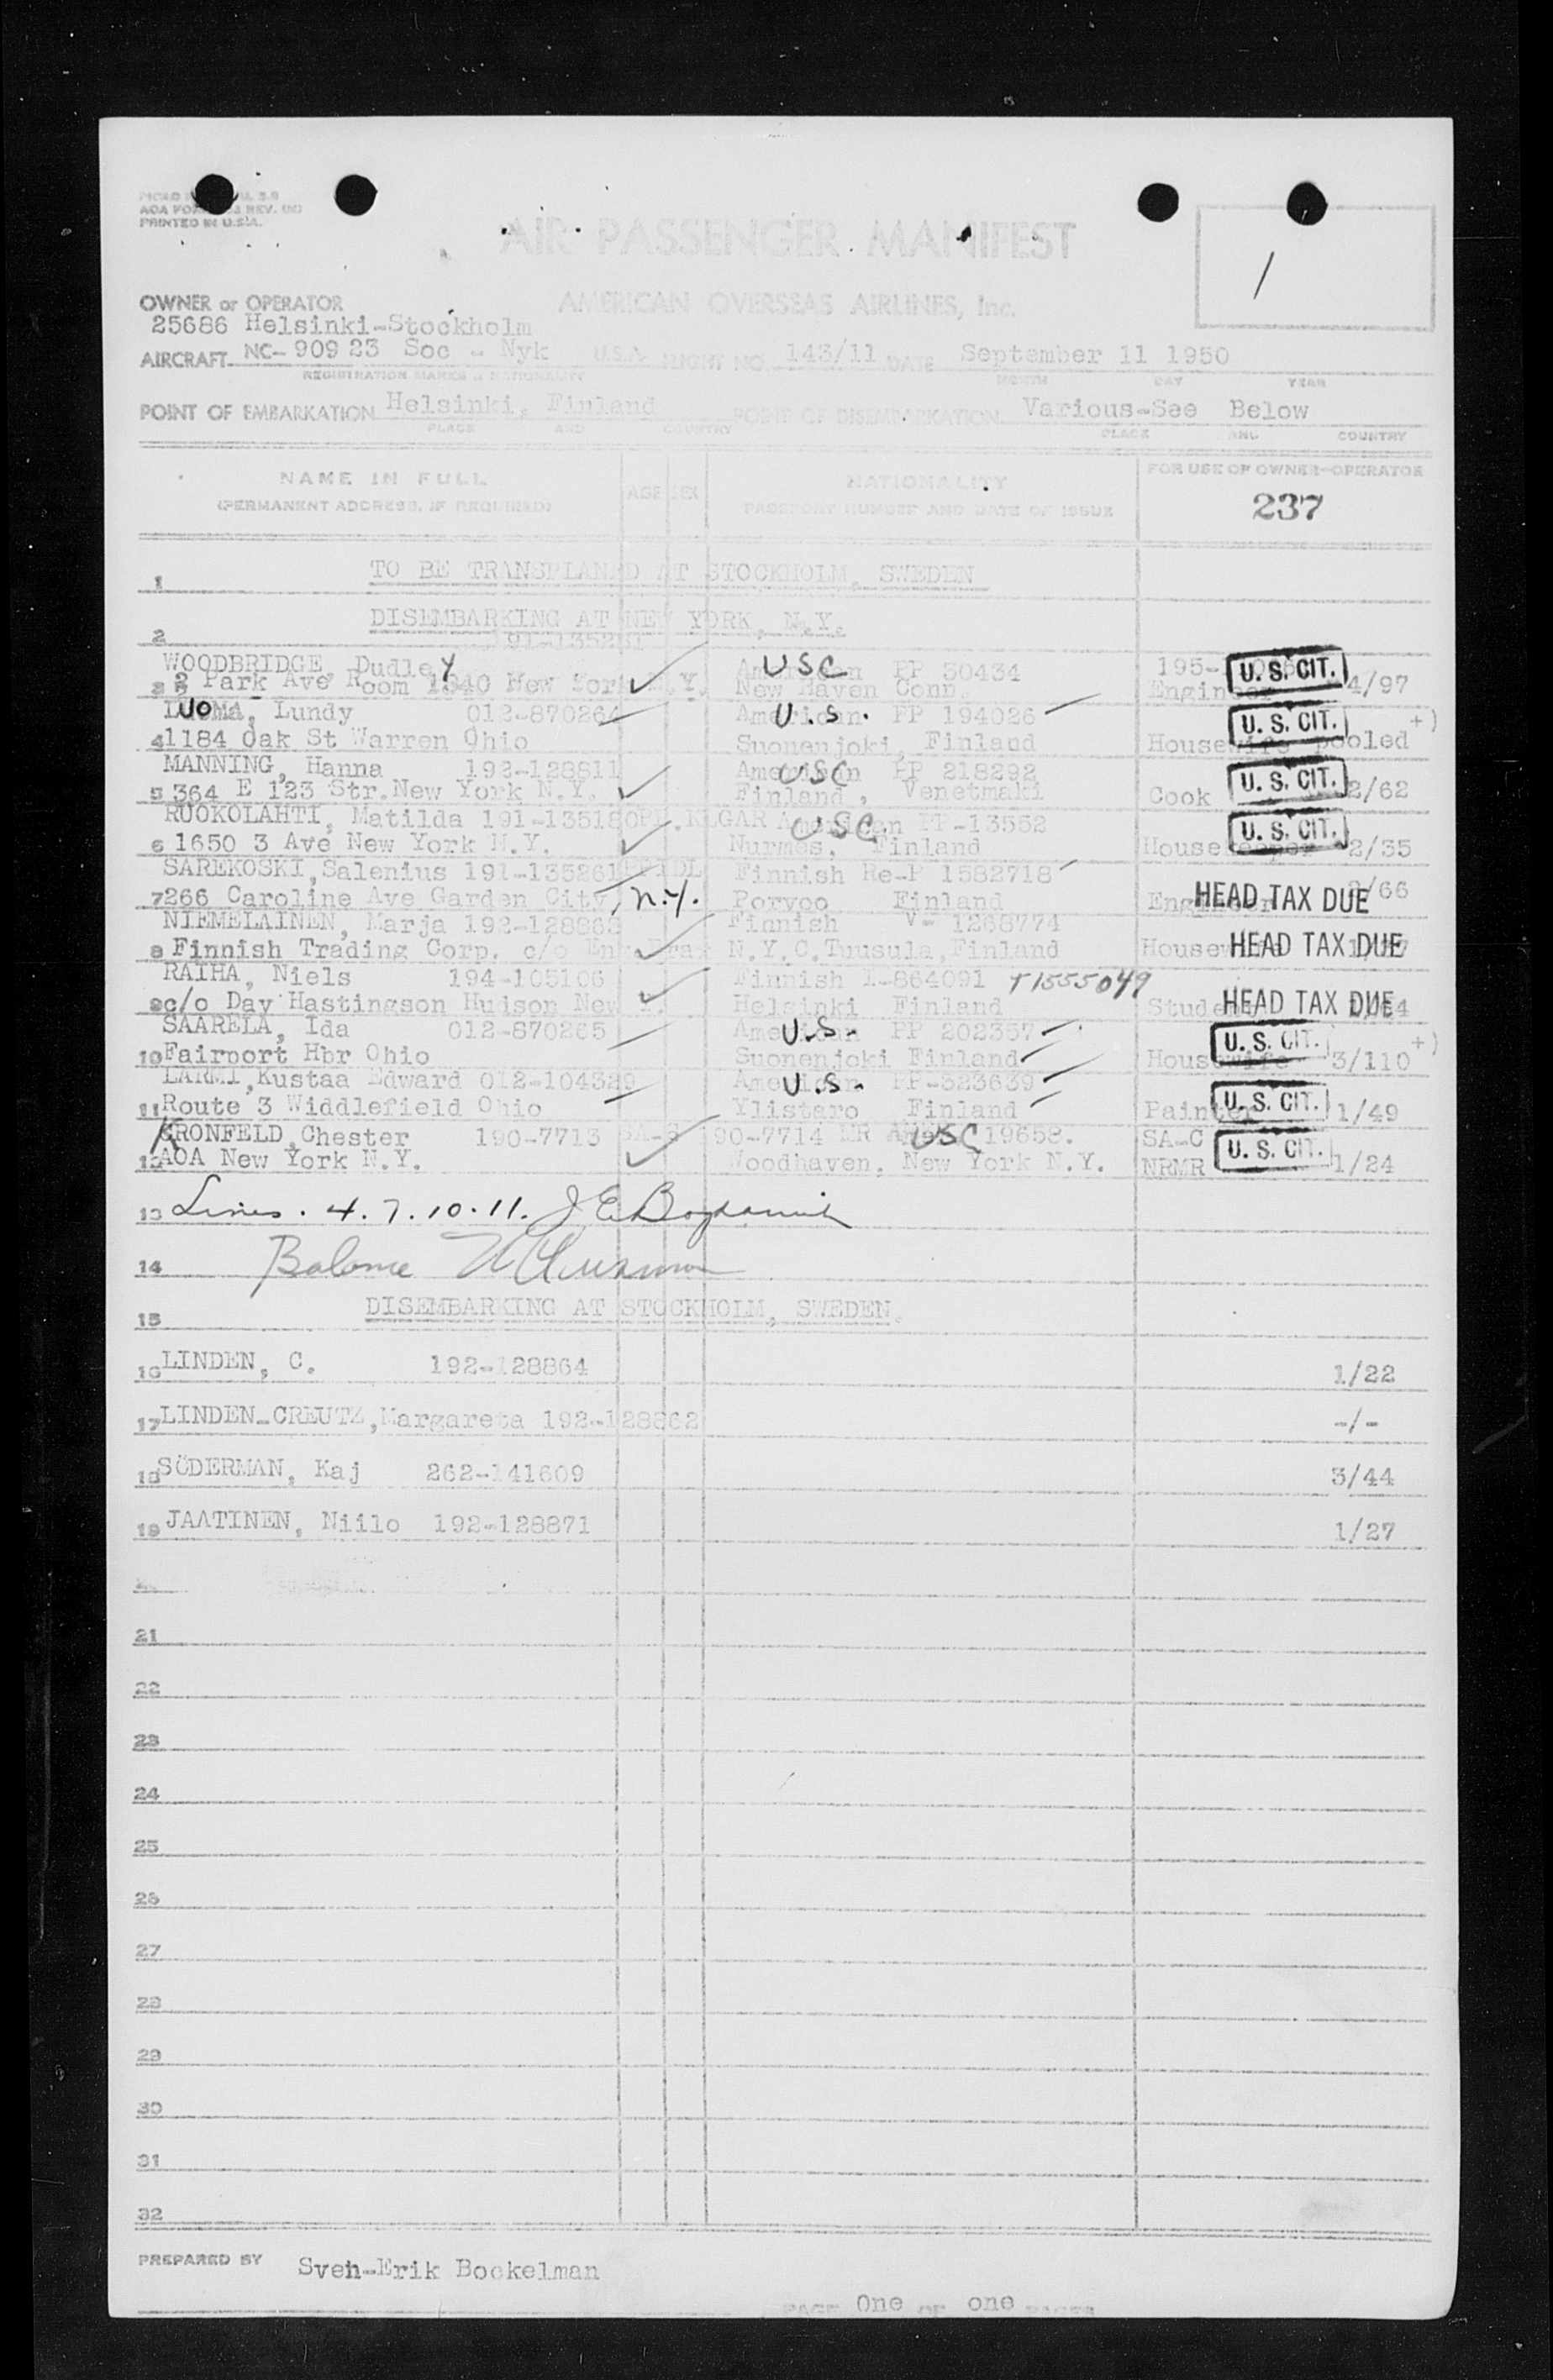 AOA FORM REV.
PRINTED IN U.S.A.
AIR PASSENGER MANIFEST
1
OWNER or OPERATOR AMERICAN OVERSEAS AIRLINES, Inc.
25686 Helsinki-Stockholm
AIRCRAFT NC- 909 23 Soc - Nyk U.S.A. FLIGHT NO. 143/11 DATE September 11 1950
REGISTRATION MARKS & NATIONALITY MONTH DAY YEAR
POINT OF EMBARKATION Helsinki, Finland POINT OF DISEMBARKATION Various-See Below
PLACE AND COUNTRY PLACE AND COUNTRY
NAME IN FULL AGE SEX NATIONALITY FOR USE OF OWNER-OPERATOR
(PERMANENT ADDRESS, IF REQUIRED) PASSPORT NUMBER AND DATE OF ISSUE 237
1 TO BE TRANSPLANED AT STOCKHOLM, SWEDEN
2 DISEMBARKING AT NEW YORK, N.Y.
WOODBRIDGE Dudley American USC PP 30434 195- U.S. CIT.
3 2 Park Ave Room 1340 New York N.Y. New Haven Conn. Engineer 4/97
LUOMA, Lundy 012-870264 American U.S. PP 194026 U.S. CIT. +)
4 1184 Oak St Warren Ohio Suonenjoki, Finland Housewife pooled
MANNING, Hanna 192-128811 American USC PP 218292 U.S. CIT.
5 364 E 123 Str. New York N.Y. Finland, Venetmaki Cook 2/62
RUOKOLAHTI, Matilda 191-135180 American USC PP-13552 U.S. CIT.
6 1650 3 Ave New York N.Y. Nurmes, Finland Housekeeper 2/35
SAREKOSKI, Salenius 191-135261 Finnish Re-P 1582718
7 266 Caroline Ave Garden City, N.Y. Porvoo Finland Engineer HEAD TAX DUE /66
NIEMELAINEN, Marja 192-128868 Finnish V- 1268774
8 Finnish Trading Corp. c/o N.Y.C. Tuusula, Finland Housewife HEAD TAX DUE
RAIHA, Niels 194-105106 Finnish L-864091 T1555049
9 c/o Day Hastingson Hudson New Y. Helsinki Finland Student HEAD TAX DUE
SAARELA, Ida 012-870265 American U.S. PP 202357 U.S. CIT. +)
10 Fairport Hbr Ohio Suonenjoki Finland Housewife 3/110
LARMI, Kustaa Edward 012-104329 American U.S. PP-323639
11 Route 3 Widdlefield Ohio Ylistaro Finland Painter U.S. CIT. 1/49
KRONFELD, Chester 190-7713 90-7714 USC 19658. SA-C
12 AOA New York N.Y. Woodhaven, New York N.Y. NRMR U.S. CIT. 1/24
13 Lines. 4. 7. 10. 11.
14 Balance
15 DISEMBARKING AT STOCKHOLM, SWEDEN.
16 LINDEN, C. 192-128864 1/22
17 LINDEN-CREUTZ, Margareta 192-128862 -/-
18 SÖDERMAN, Kaj 262-141609 3/44
19 JAATINEN, Niilo 192-128871 1/27
21
22
23
24
25
26
27
28
29
30
31
32
PREPARED BY Sven-Erik Bockelman
PAGE One OF one PAGES